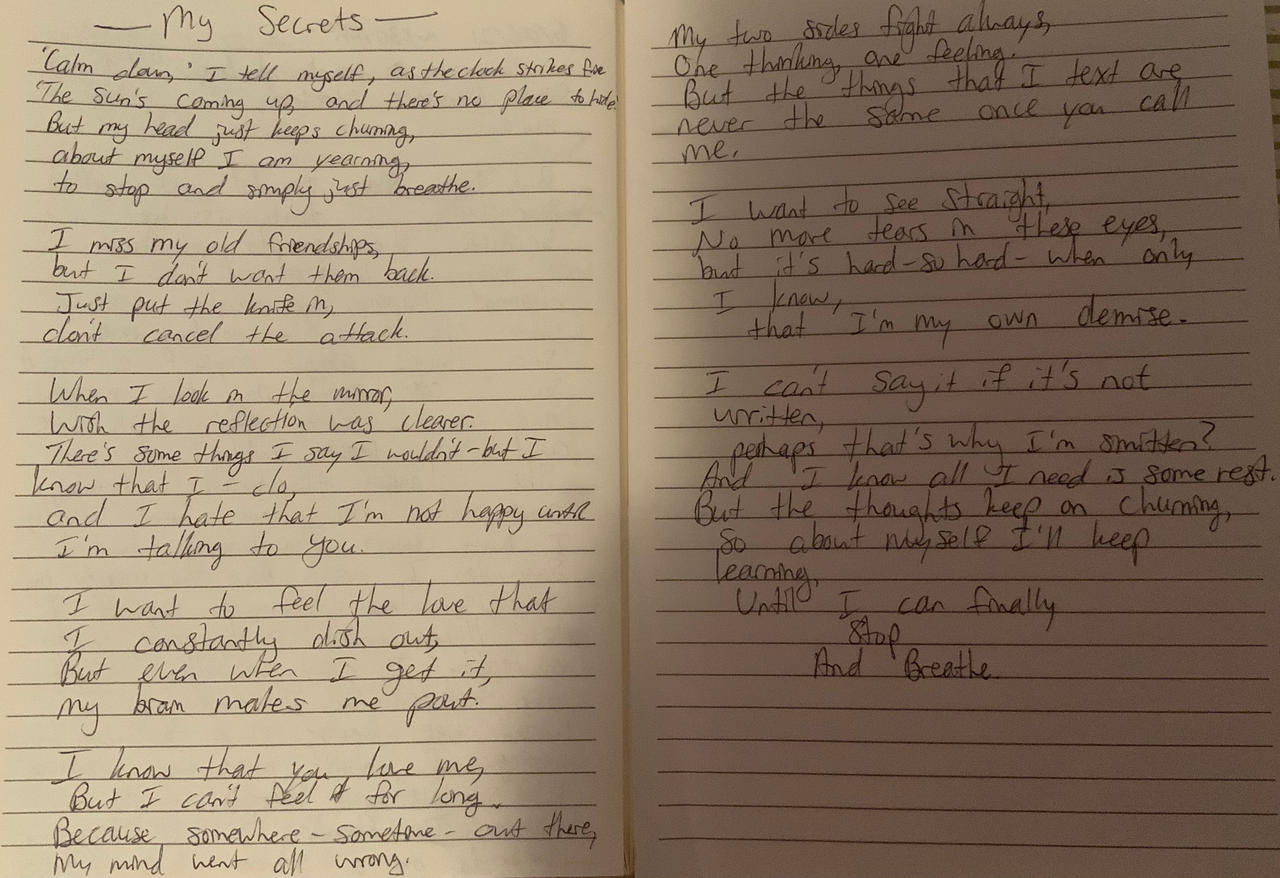 — My Secrets —
'Calm down,' I tell myself, as the clock strikes five
The sun's coming up, and there's no place to hide
But my head just keeps churning,
about myself I am yearning,
to stop and simply just breathe.
I miss my old friendships,
but I don't want them back.
Just put the knife in,
don't cancel the attack.
When I look in the mirror,
Wish the reflection was clearer.
There's some things I say I wouldn't - but I
know that I - do,
and I hate that I'm not happy until
I'm talking to you.
I want to feel the love that
I constantly dish out,
But even when I get it,
my brain makes me pout.
I know that you love me,
But I can't feel it for long.
Because somewhere - sometime - out there,
My mind went all wrong.
My two sides fight always,
One thinking, one feeling.
But the things that I text are
never the same once you call
me.
I want to see straight,
No more tears in these eyes,
but it's hard - so hard - when only
I know,
that I'm my own demise.
I can't say it if it's not
written,
perhaps that's why I'm smitten?
And I know all I need is some rest.
But the thoughts keep on churning,
So about myself I'll keep
learning,
Until I can finally
Stop
And Breathe.